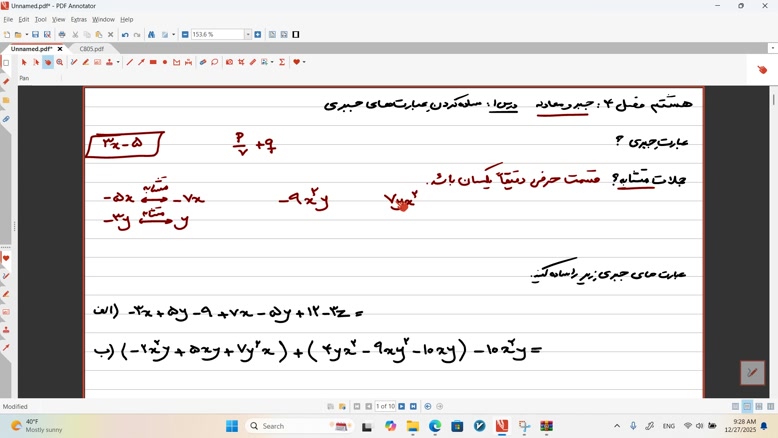 Unnamed.pdf* - PDF Annotator
File Edit Tool View Extras Window Help
153.6 %
Unnamed.pdf* CB05.pdf
Pan
هشتم فصل ۴: جبر و معادله درس ۱: ساده کردن عبارت‌های جبری
عبارت جبری ? p/v + q ۳x - ۵
جملات متشابه? قسمت حرفی دقیقاً یکسان باشد.
-۵x متشابه -۷x -۹x²y ۷yx²
-۳y متشابه y
عبارت های جبری زیر را ساده کنید.
الف) -۳x + ۵y - ۹ + ۷x - ۵y + ۱۲ - ۳z =
ب) (-۲x²y + ۵xy + ۷y²x) + (۴yx² - ۹xy² - ۱۰xy) - ۱۰x²y =
Modified
1 of 10
40°F
Mostly sunny
Search
9:28 AM
12/27/2025